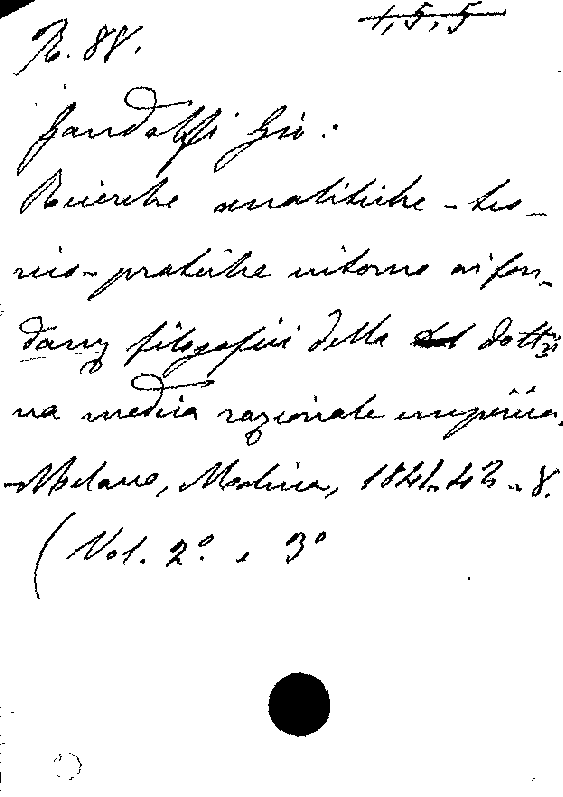 1,5,5
R. 88.
Gandolfi Gio:
Ricerche analitiche-teo-
rico-pratiche intorno ai fon-
damti filosofici della dottri
na medica razionale empirica.
-Milano, Molina, 1841-43-8.
(Vol. 2º e 3º